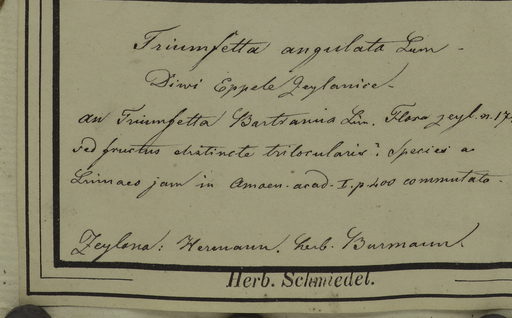 Triumfetta angulata Lam -
Diwi Eppele Zeylanice -
an Triumfetta Bartramia Lin. Flora zeyl. n. 17
sed fructus distincte trilocularis? Species a
Linnaeo jam in Amoen. acad. I. p. 400 commutata -
Zeylona: Hermann. herb. Burmann.
Herb. Schmiedel.